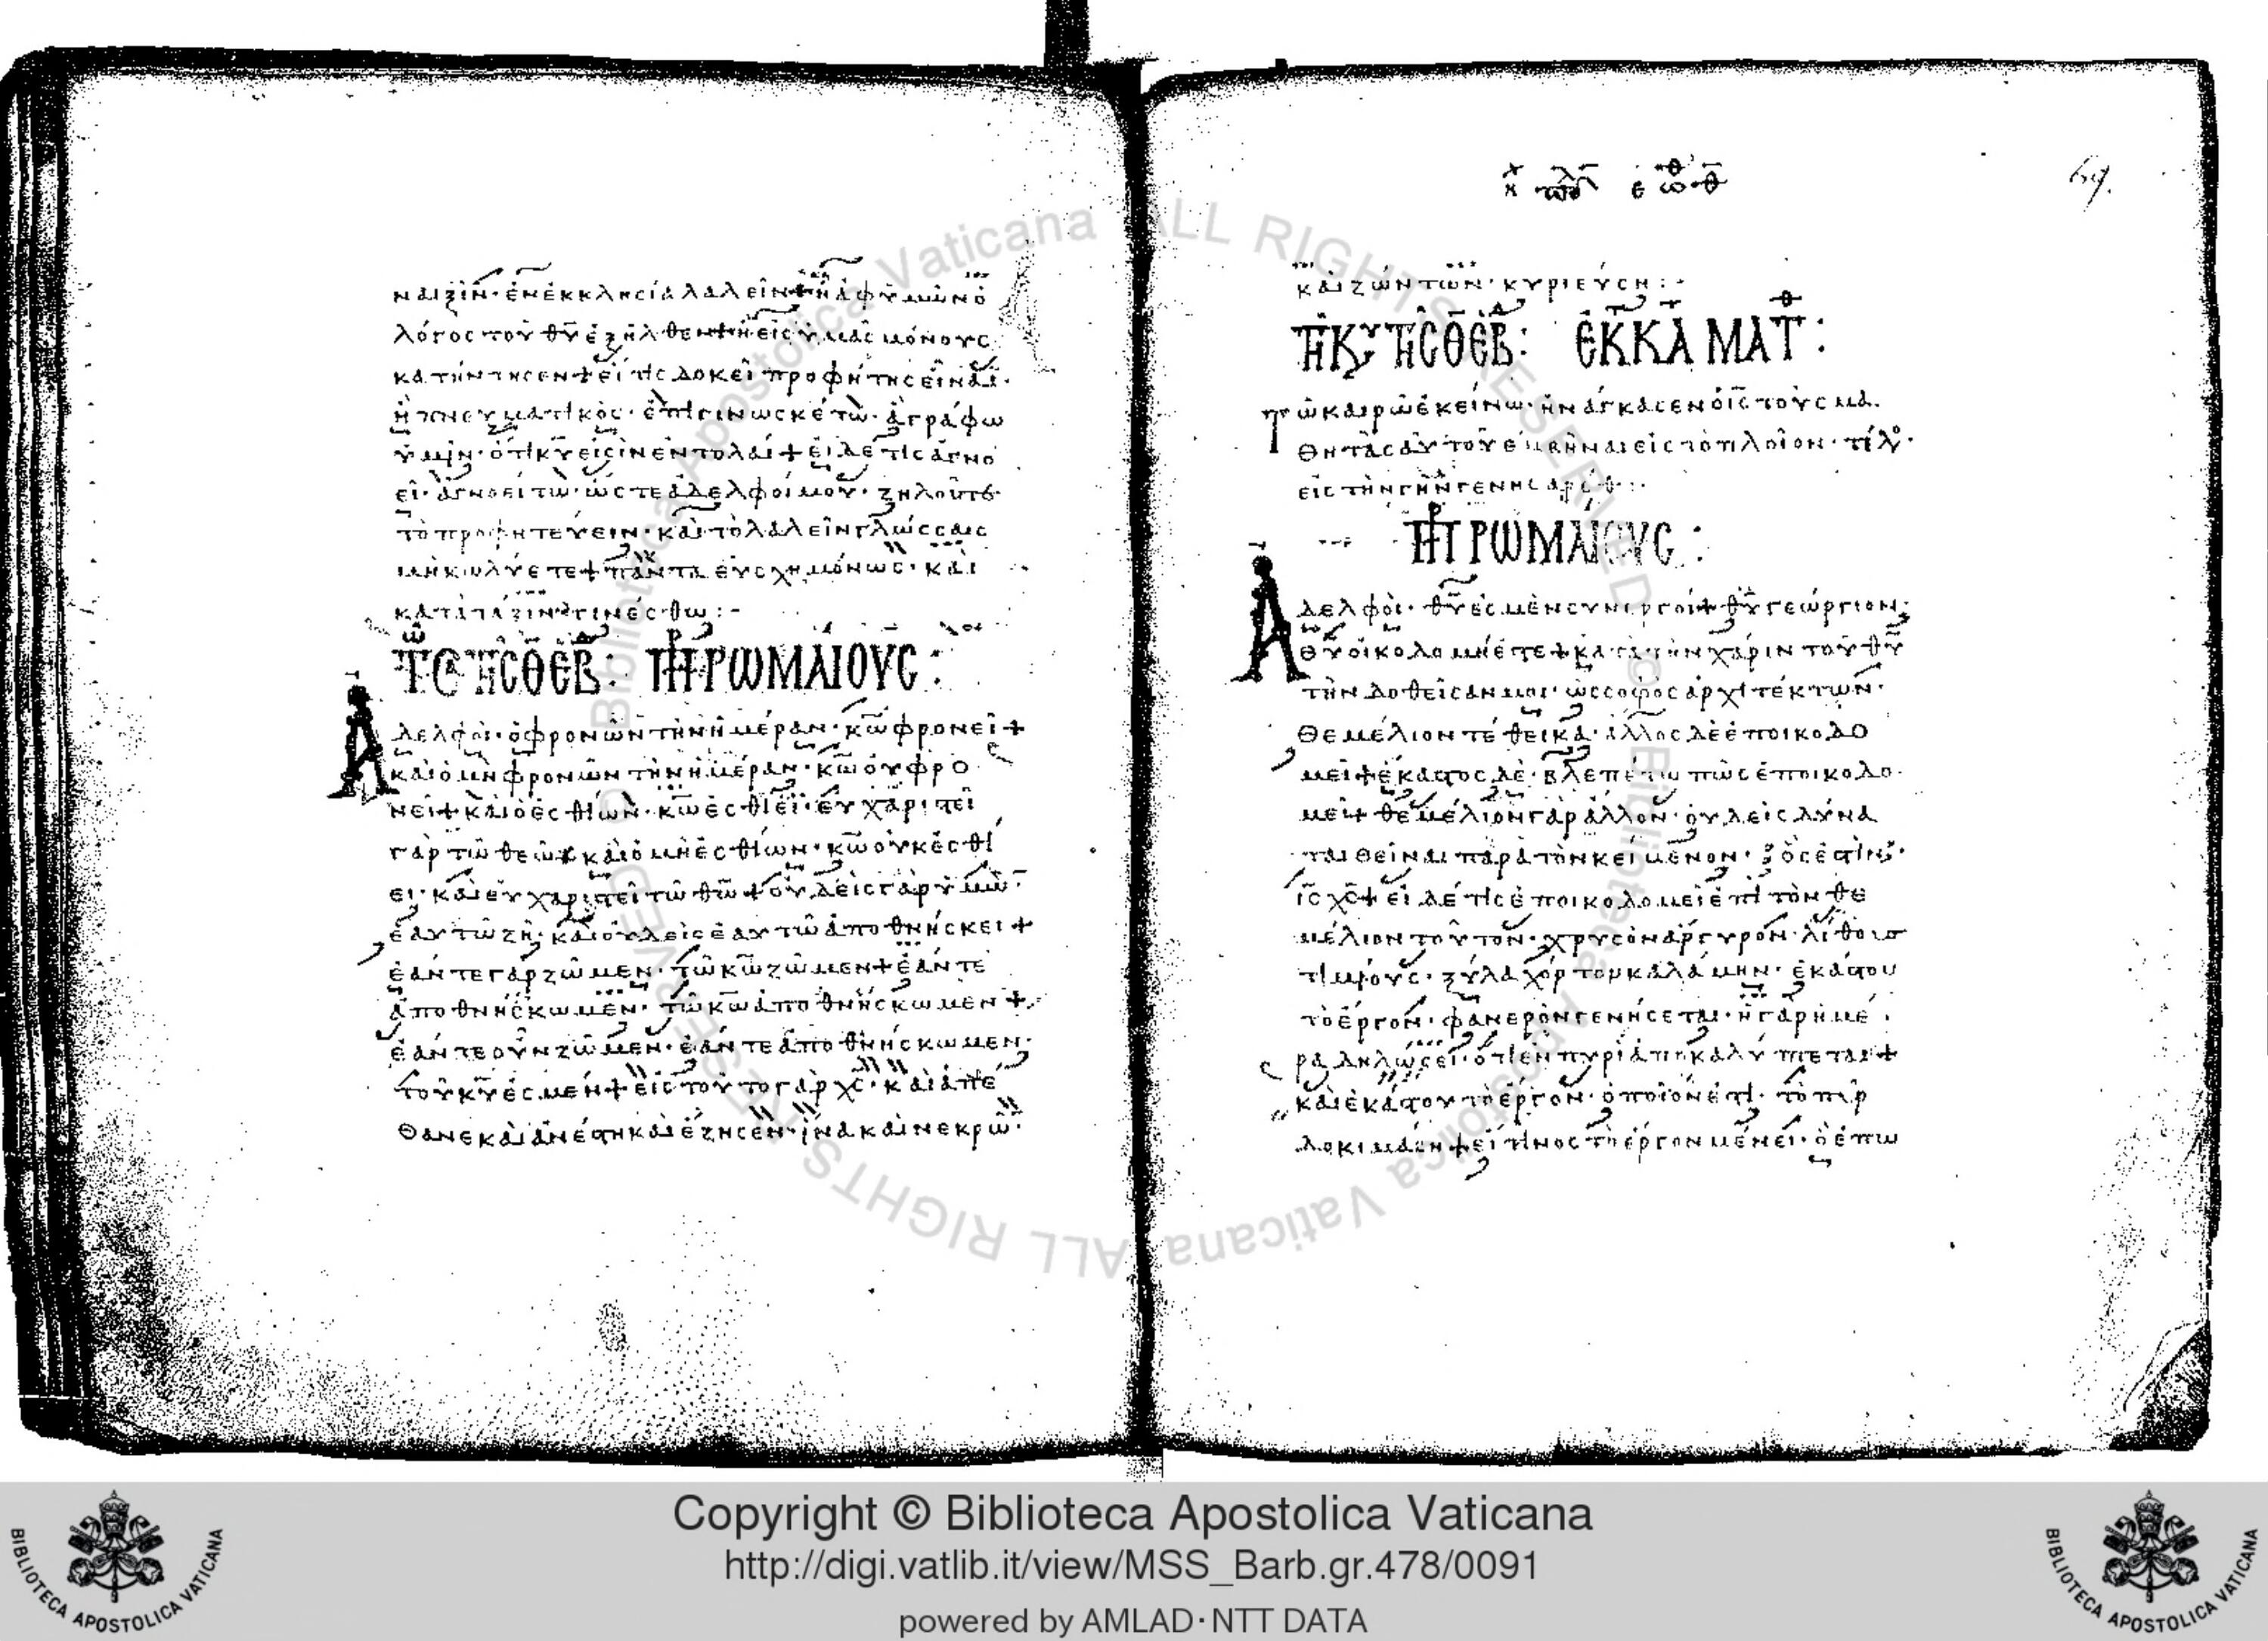 ναιξὶν· ἐν ἐκκλησία λαλεῖν + ἢ ἀφ' ὑμῶν ὁ
λόγος τοῦ θυ ἐξῆλθεν + ἢ εἰς ὑμᾶς μόνους
κατήντησεν + εἴ τις δοκεῖ προφήτης εἶναι·
ἢ πνευματικὸς· ἐπιγινωσκέτω· ἃ γράφω
ὑμῖν· ὅτι κυ εἰσὶν ἐντολαί + εἰ δέ τις ἀγνο
εῖ· ἀγνοείτω· ὥστε ἀδελφοί μου· ζηλοῦτε
τὸ προφητεύειν· καὶ τὸ λαλεῖν γλώσσαις
μὴ κωλύετε + πάντα εὐσχημόνως· καὶ
κατὰ τάξιν γινέσθω :-
ΡΩΜΑΙΟΥΣ :
Ἀδελφοὶ· ὁ φρονῶν τὴν ἡμέραν· κω φρονεῖ +
καὶ ὁ μὴ φρονῶν τὴν ἡμέραν· κω οὐ φρο
νεῖ + καὶ ὁ ἐσθίων· κω ἐσθίει· εὐχαριστεῖ
γὰρ τῶ θεῶ + καὶ ὁ μὴ ἐσθίων· κω οὐκ ἐσθί
ει· καὶ εὐχαριστεῖ τῶ θω + οὐδεὶς γὰρ ὑμῶ
ἑαυτῶ ζῆ· καὶ οὐδεὶς ἑαυτῶ ἀποθνήσκει +
ἐάν τε γὰρ ζῶμεν· τῶ κω ζῶμεν + ἐάν τε
ἀποθνήσκωμεν· τῶ κω ἀποθνήσκωμεν +
ἐάν τε οὖν ζῶμεν· ἐάν τε ἀποθνήσκωμεν·
τοῦ κυ ἐσμέν + εἰς τοῦτο γὰρ χς· καὶ ἀπέ
θανε καὶ ἀνέστη καὶ ἔζησεν· ἵνα καὶ νεκρῶ·
καὶ ζώντων· κυριεύση :-
ΜΑΤ :
τῶ καιρῶ ἐκείνω· ἠνάγκασεν ὁ ις τοὺς μα
θητὰς αὐτοῦ ἐμβῆναι εἰς τὸ πλοῖον·
εἰς τὴν γῆν γεννησαρέθ :-
ΡΩΜΑΙΟΥΣ :
Ἀδελφοὶ· θυ ἐσμὲν συνεργοί + θυ γεώργιον·
θυ οἰκοδομή ἐστε + κατὰ τὴν χάριν τοῦ θυ
τὴν δοθεῖσαν μοι· ὡς σοφὸς ἀρχιτέκτων·
θεμέλιον τέθεικα· ἄλλος δὲ ἐποικοδο
μεῖ + ἕκαστος δὲ· βλεπέτω πῶς ἐποικοδο
μεῖ + θεμέλιον γὰρ ἄλλον· οὐδεὶς δύνα
ται θεῖναι παρὰ τὸν κείμενον· ὅς ἐστιν·
ις χς + εἰ δέ τις ἐποικοδομεῖ ἐπὶ τὸν θε
μέλιον τοῦτον· χρυσὸν ἄργυρον· λίθους
τιμίους· ξύλα χόρτον καλάμην· ἑκάστου
τὸ ἔργον· φανερὸν γενήσεται· ἡ γὰρ ἡμέ
ρα δηλώσει· ὅτι ἐν πυρὶ ἀποκαλύπτεται +
καὶ ἑκάστου τὸ ἔργον· ὁποῖον ἐστι· τὸ πῦρ
δοκιμάσει + εἴ τινος τὸ ἔργον μένει· ὃ ἐπω
Copyright © Biblioteca Apostolica Vaticana
http://digi.vatlib.it/view/MSS_Barb.gr.478/0091
powered by AMLAD·NTT DATA
BIBLIOTECA APOSTOLICA VATICANA
BIBLIOTECA APOSTOLICA VATICANA